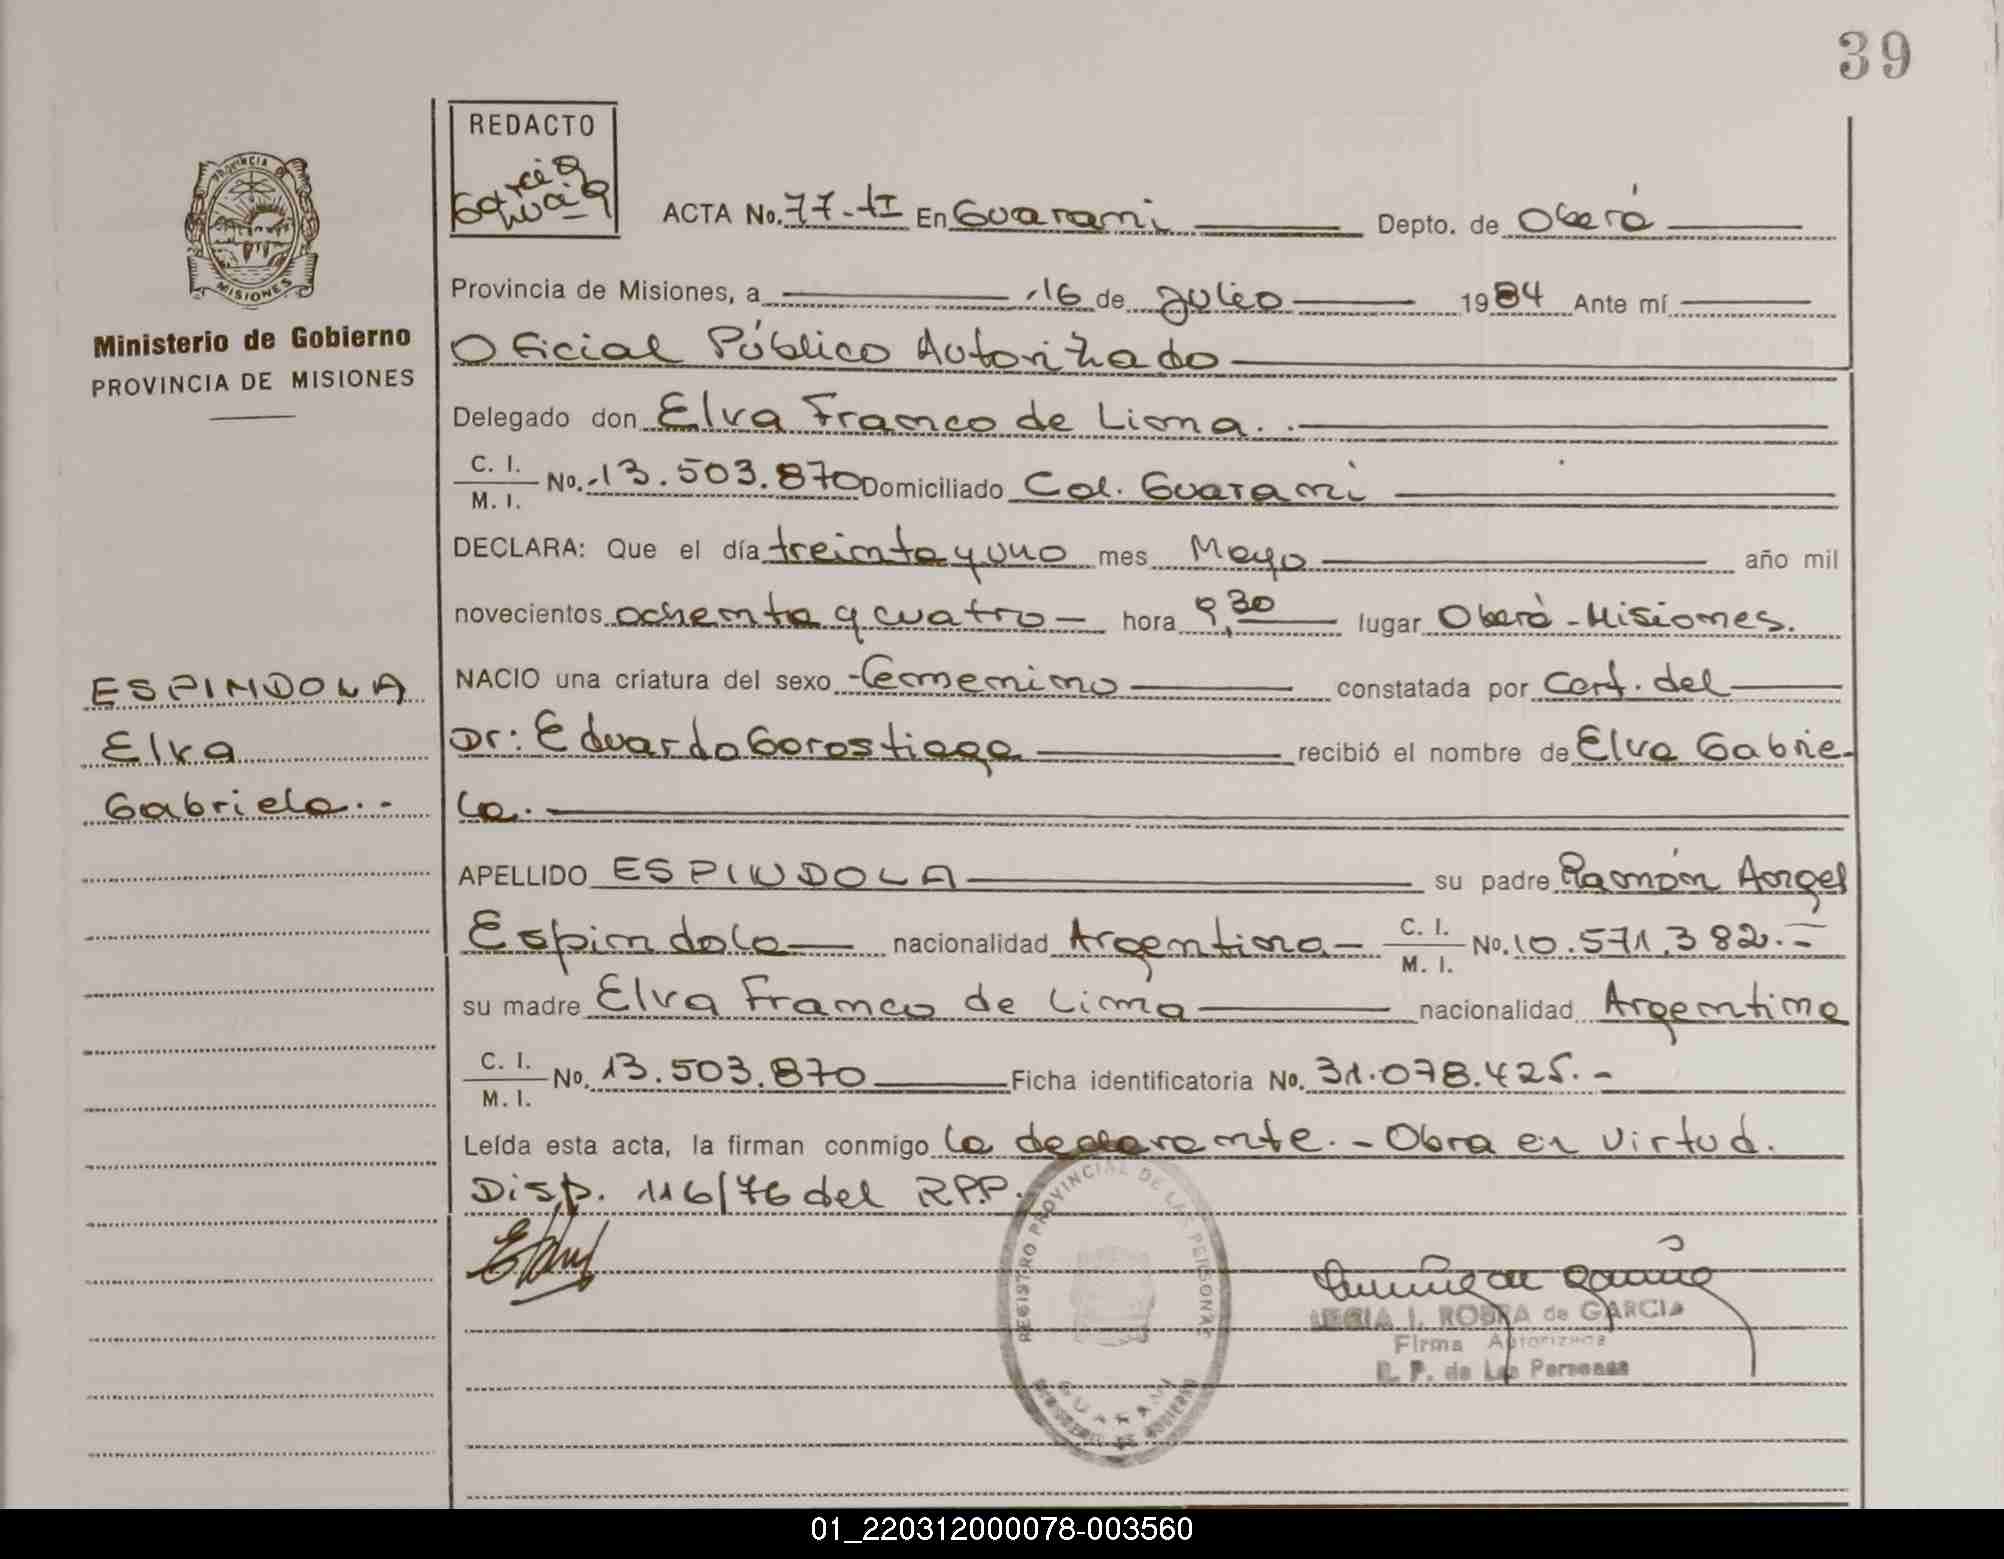 39
REDACTO
García
PROVINCIA DE
MISIONES
Ministerio de Gobierno
PROVINCIA DE MISIONES
ACTA No. 77-tI En Guarani Depto. de Oberá
Provincia de Misiones, a 16 de Julio 1984 Ante mí
Oficial Público Autorizado
Delegado don Elva Franco de Lima.
C. I.
M. I. No. 13.503.870 Domiciliado Col. Guarani
DECLARA: Que el día treinta y uno mes Mayo año mil
novecientos ochenta y cuatro hora 9,30 lugar Oberá - Misiones.
ESPINDOLA
Elva
Gabriela.-
NACIO una criatura del sexo femenino constatada por Cert. del
Dr: Eduardo Gorostiaga recibió el nombre de Elva Gabrie-
la.
APELLIDO ESPINDOLA su padre Ramón Angel
Espindola nacionalidad Argentina - C. I.
M. I. No. 10.571.382.-
su madre Elva Franco de Lima nacionalidad Argentina
C. I.
M. I. No. 13.503.870 Ficha identificatoria No. 31.078.425.-
Leída esta acta, la firman conmigo la declarante.- Obra en virtud.
Disp. 116/76 del R.P.P.
REGISTRO PROVINCIAL DE LAS PERSONAS
GUARANI
MINISTERIO DE GOBIERNO
I. ROBRA de GARCIA
Firma Autorizada
R. P. de Las Personas
01_220312000078-003560